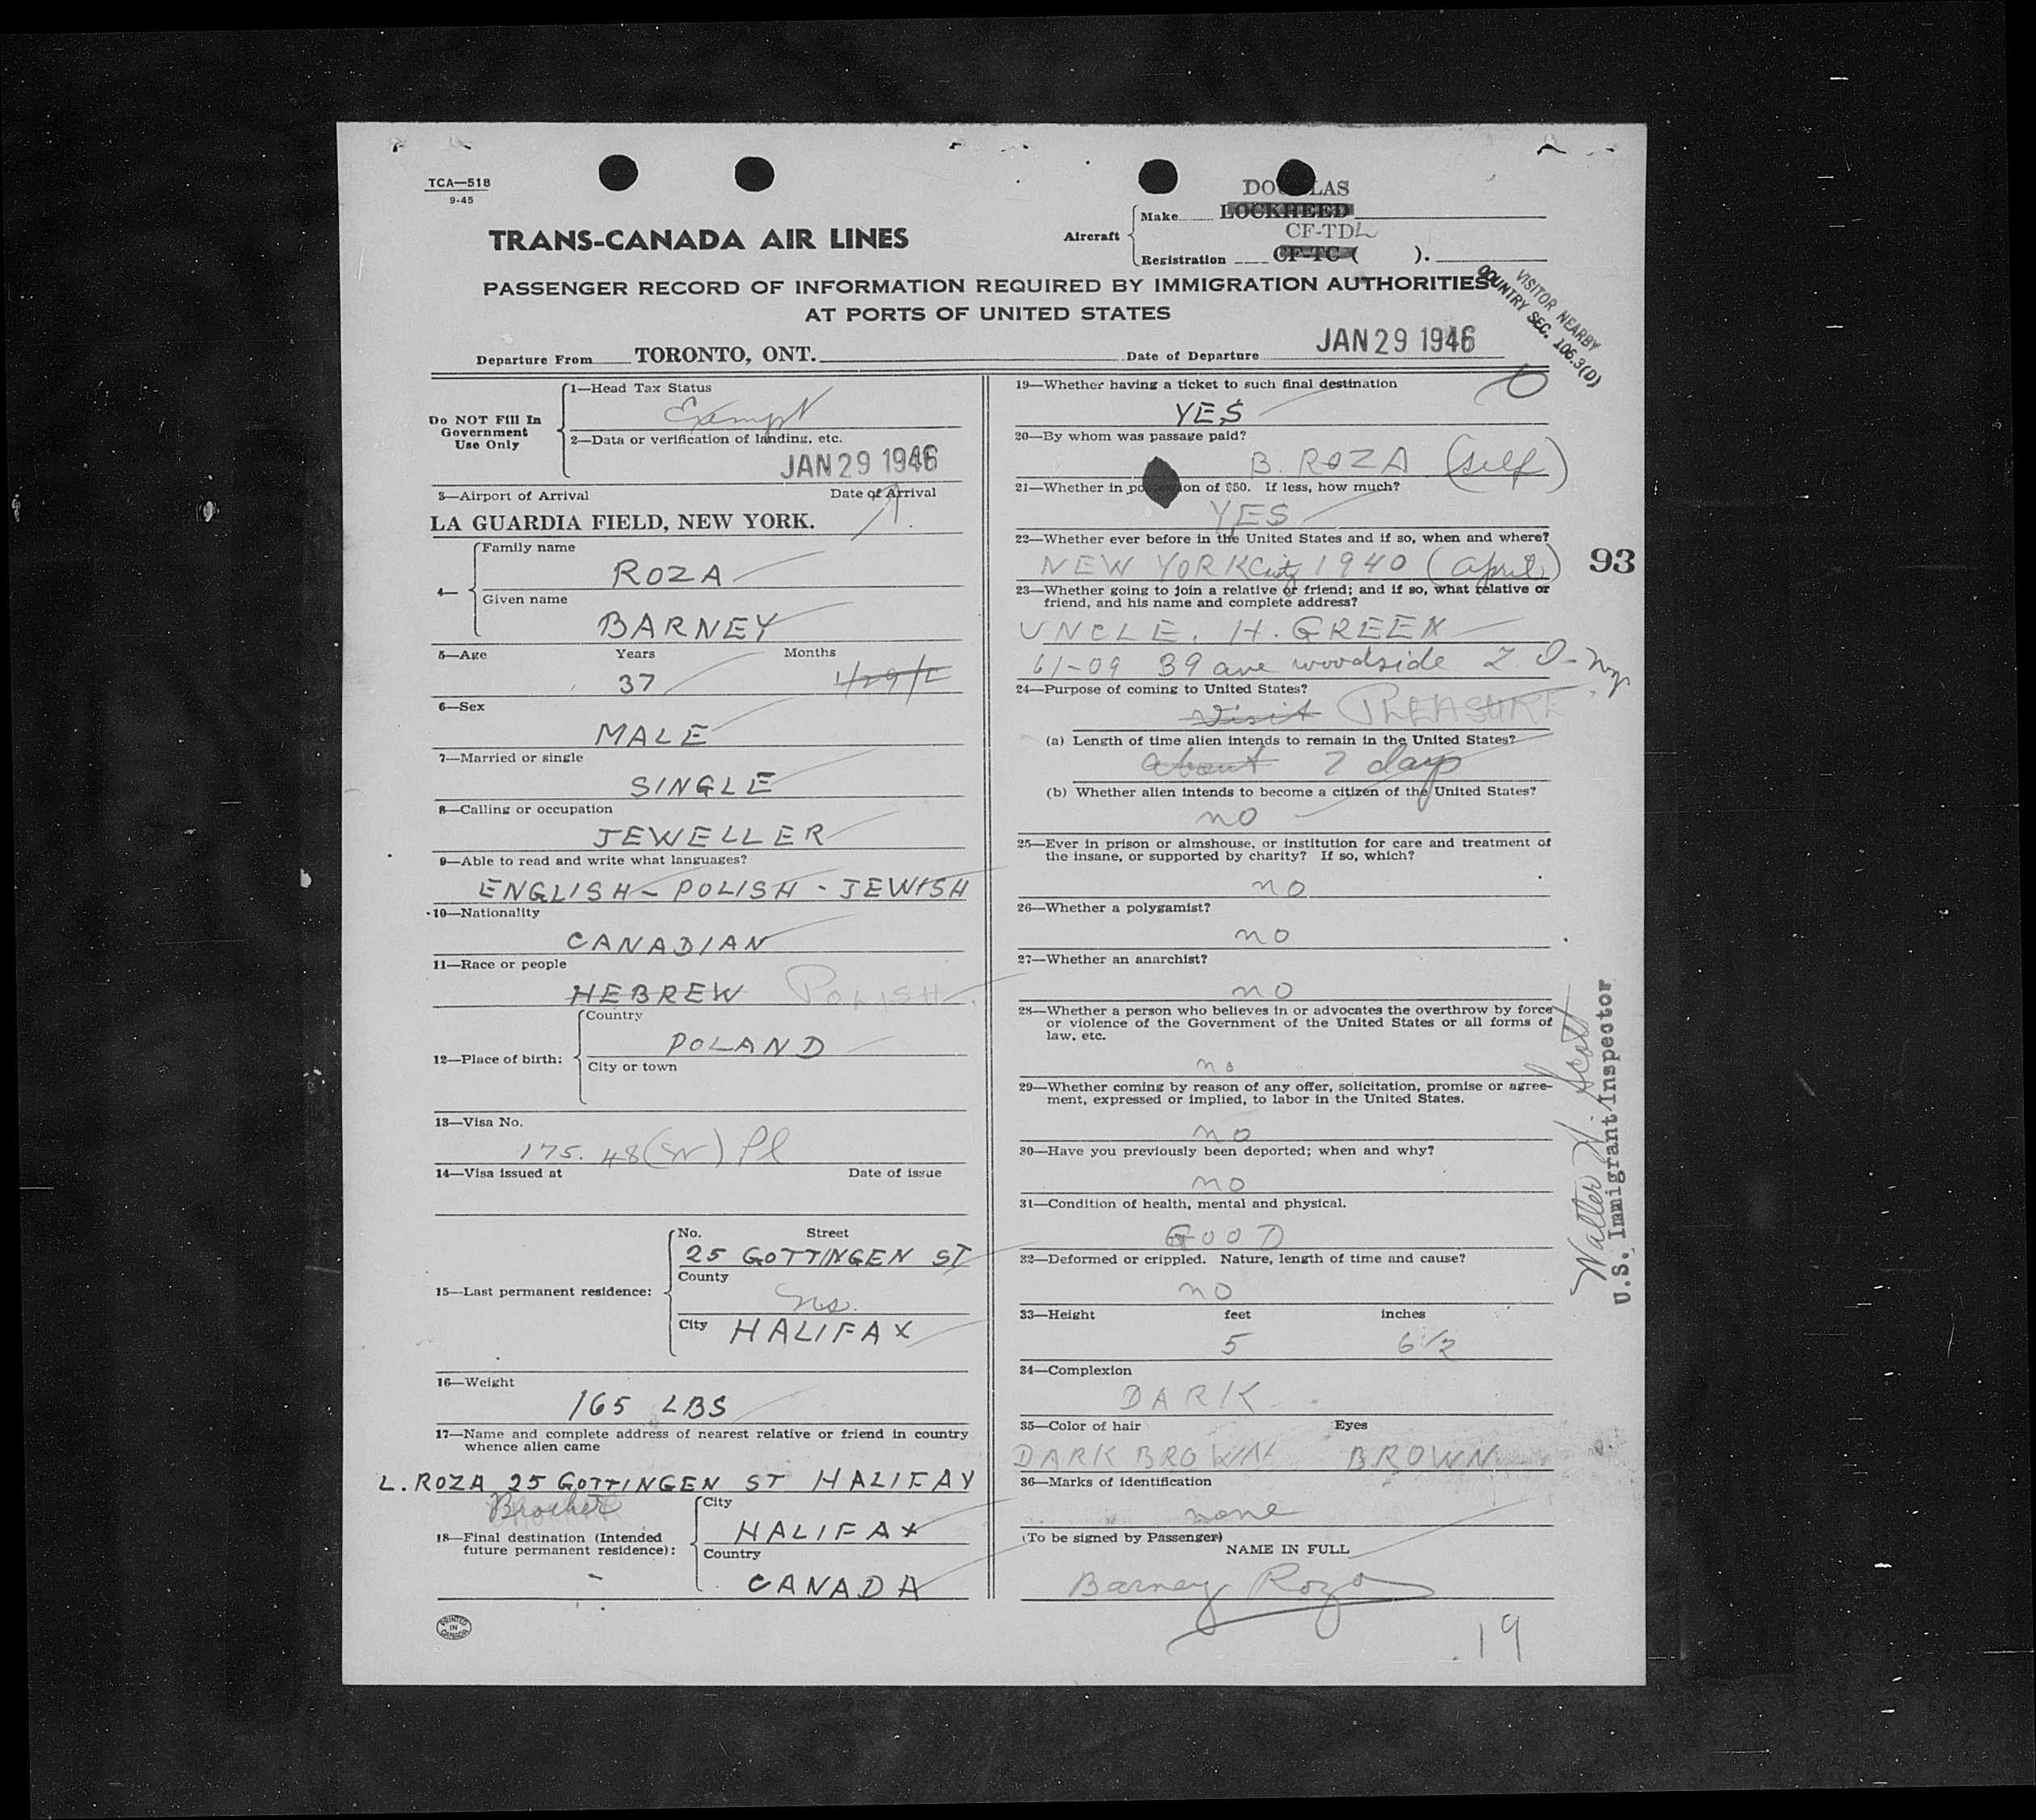 TCA—518
9-45
DOUGLAS
Make LOCKHEED
TRANS-CANADA AIR LINES
Aircraft
CF-TDL
Registration CF-TC ( ).
PASSENGER RECORD OF INFORMATION REQUIRED BY IMMIGRATION AUTHORITIES
AT PORTS OF UNITED STATES
VISITOR NEARBY
COUNTRY SEC. 106.3(D)
Departure From TORONTO, ONT. Date of Departure JAN 29 1946
Do NOT Fill In
Government
Use Only
1—Head Tax Status
Exempt
2—Data or verification of landing, etc.
JAN 29 1946
3—Airport of Arrival Date of Arrival
LA GUARDIA FIELD, NEW YORK.
4—
Family name
ROZA
Given name
BARNEY
5—Age Years Months
37
6—Sex
MALE
7—Married or single
SINGLE
8—Calling or occupation
JEWELLER
9—Able to read and write what languages?
ENGLISH – POLISH - JEWISH
10—Nationality
CANADIAN
11—Race or people
HEBREW POLISH
12—Place of birth:
Country
POLAND
City or town
13—Visa No.
175.48
14—Visa issued at Date of issue
15—Last permanent residence:
No. Street
25 GOTTINGEN ST
County
NS.
City HALIFAX
16—Weight
165 LBS
17—Name and complete address of nearest relative or friend in country
whence alien came
L. ROZA 25 GOTTINGEN ST HALIFAX
Brother
18—Final destination (Intended
future permanent residence):
City
HALIFAX
Country
CANADA
PRINTED
IN
CANADA
19—Whether having a ticket to such final destination
YES
20—By whom was passage paid?
B. ROZA (self)
21—Whether in possession of $50. If less, how much?
YES
22—Whether ever before in the United States and if so, when and where?
NEW YORK City 1940 (April)
93
23—Whether going to join a relative or friend; and if so, what relative or
friend, and his name and complete address?
UNCLE. H. GREEN
61-09 39 ave woodside L.I. NY
24—Purpose of coming to United States?
Visit PLEASURE
(a) Length of time alien intends to remain in the United States?
about 7 days
(b) Whether alien intends to become a citizen of the United States?
no
25—Ever in prison or almshouse, or institution for care and treatment of
the insane, or supported by charity? If so, which?
no
26—Whether a polygamist?
no
27—Whether an anarchist?
no
28—Whether a person who believes in or advocates the overthrow by force
or violence of the Government of the United States or all forms of
law, etc.
no
29—Whether coming by reason of any offer, solicitation, promise or agree-
ment, expressed or implied, to labor in the United States.
no
30—Have you previously been deported; when and why?
no
31—Condition of health, mental and physical.
GOOD
32—Deformed or crippled. Nature, length of time and cause?
no
33—Height feet inches
5 6 1/2
34—Complexion
DARK
35—Color of hair Eyes
DARK BROWN BROWN
36—Marks of identification
none
(To be signed by Passenger)
NAME IN FULL
Barney Roza
19
Walter H. Scott
U.S. Immigrant Inspector